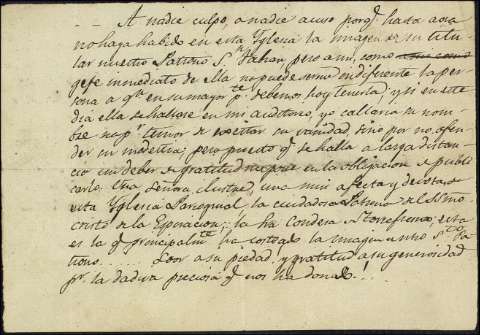 A nadie culpo, a nadie acuso porq̃ hasta aora
no haya habido en esta Yglesia la imagen de su titu-
lar nuestro Patrono S.n Fabian, pero a mi, como
gefe inmediato de ella no puede serme indiferente la per-
sona a q.n en su mayor p.te debemos hoy tenerla; y si en este
dia ella se hallase en mi auditorio, yo callaria su nom-
bre no p.r temor de excitar su vanidad, sino por no ofen-
der su modestia; pero puesto q̃ se halla a larga distan-
cia un deber de gratitud me pone en la obligacion de publi-
carlo. Una Señora ilustre, una muy afecta y devota de
esta Yglesia Parroquial la cuidadosa Patrona del SSmo
Cristo de la Espiracion; la ha Condesa de Torrefresno, esta
es la q̃ principalm.te ha costeado la imagen de nro S.to Pa-
trono..... Loor a su piedad! y gratitud a su generosidad
p.r la dadiva preciosa q̃ nos ha donado!...